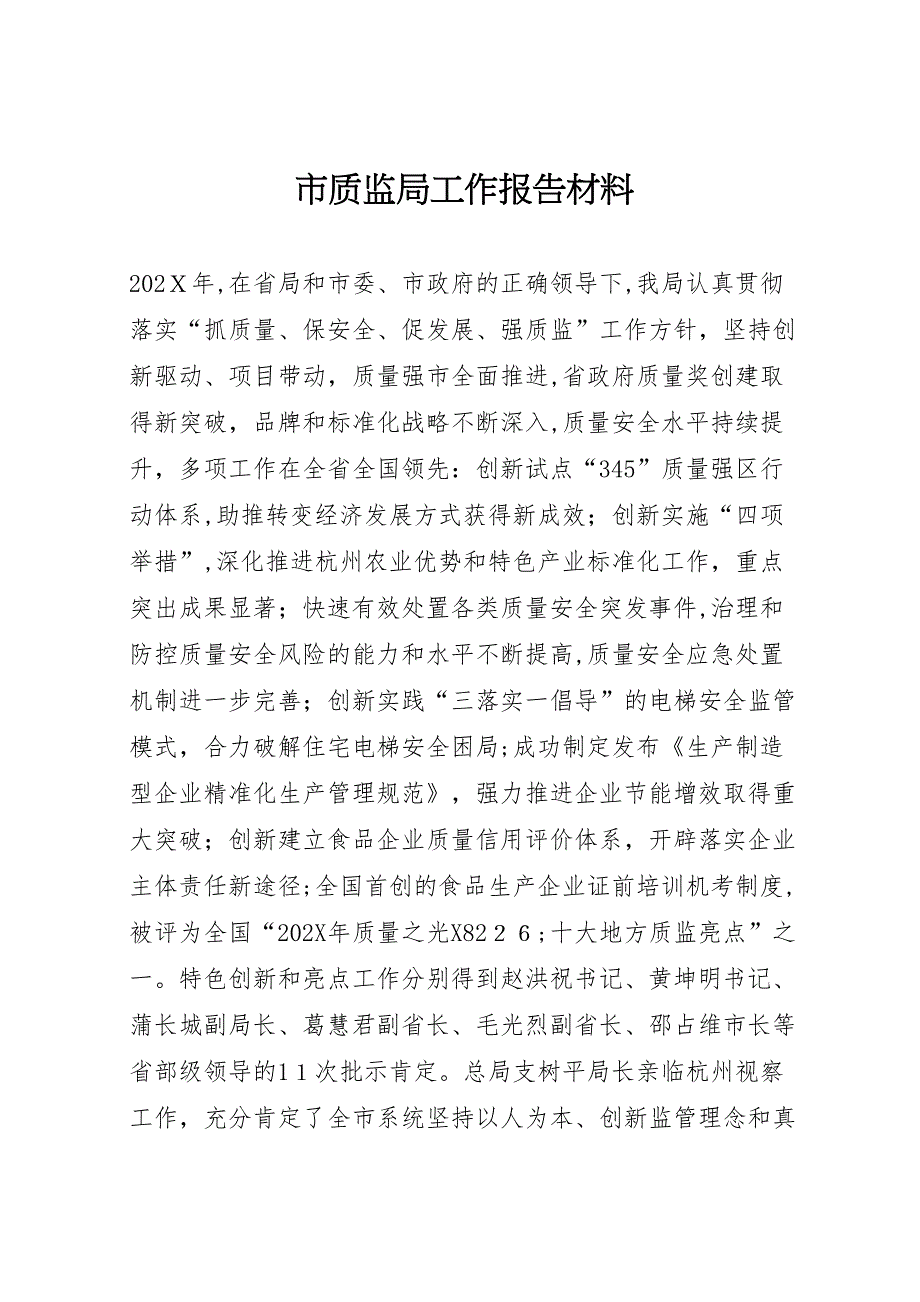 市质监局工作报告材料
202X年,在省局和市委、市政府的正确领导下,我局认真贯彻
落实“抓质量、保安全、促发展、强质监”工作方针，坚持创
新驱动、项目带动，质量强市全面推进,省政府质量奖创建取
得新突破，品牌和标准化战略不断深入,质量安全水平持续提
升，多项工作在全省全国领先：创新试点“345”质量强区行
动体系,助推转变经济发展方式获得新成效；创新实施“四项
举措”,深化推进杭州农业优势和特色产业标准化工作，重点
突出成果显著；快速有效处置各类质量安全突发事件,治理和
防控质量安全风险的能力和水平不断提高,质量安全应急处置
机制进一步完善；创新实践“三落实一倡导”的电梯安全监管
模式，合力破解住宅电梯安全困局;成功制定发布《生产制造
型企业精准化生产管理规范》，强力推进企业节能增效取得重
大突破；创新建立食品企业质量信用评价体系，开辟落实企业
主体责任新途径;全国首创的食品生产企业证前培训机考制度,
被评为全国“202X年质量之光X82２６;十大地方质监亮点”之
一。特色创新和亮点工作分别得到赵洪祝书记、黄坤明书记、
蒲长城副局长、葛慧君副省长、毛光烈副省长、邵占维市长等
省部级领导的1１次批示肯定。总局支树平局长亲临杭州视察
工作，充分肯定了全市系统坚持以人为本、创新监管理念和真